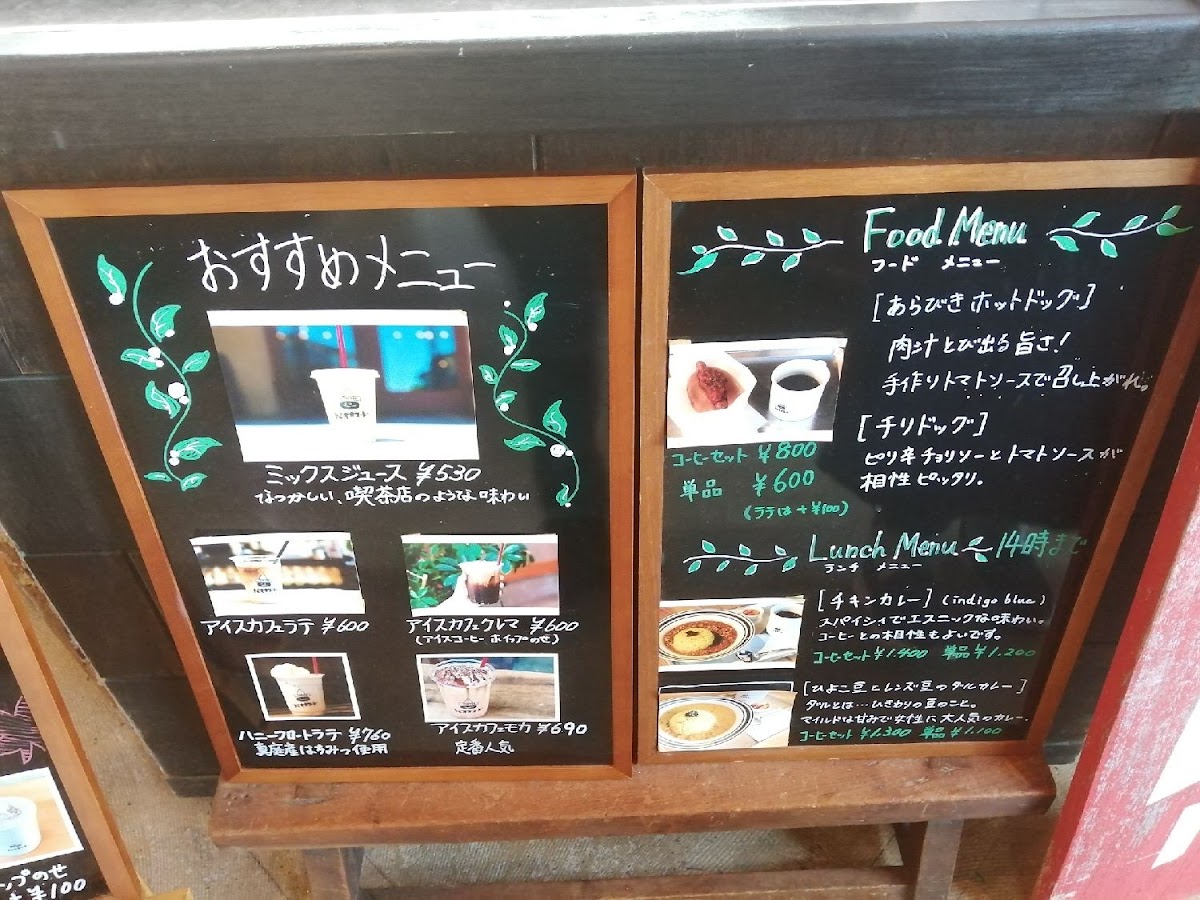 おすすめメニュー
ミックスジュース ¥530
なつかしい、喫茶店のような味わい
アイスカフェラテ ¥600
アイスカフェクレマ ¥600
(アイスコーヒー ホイップのせ)
ハニーフロートラテ ¥760
真庭産はちみつ使用
アイスカフェモカ ¥690
定番人気
Food Menu
フード メニュー
[あらびきホットドッグ]
肉汁とび出る旨さ!
手作りトマトソースで召し上がれ。
コーヒーセット ¥800
単品 ¥600
(ラテは+¥100)
[チリドッグ]
ピリ辛チョリソーとトマトソースが
相性ピッタリ。
Lunch Menu 〜14時まで
ランチ メニュー
[チキンカレー] (indigo blue)
スパイシィでエスニックな味わい。
コーヒーとの相性もよいです。
コーヒーセット ¥1.400 単品 ¥1.200
[ひよこ豆とレンズ豆のダルカレー]
ダルとは…ひきわりの豆のこと。
マイルドな甘みで女性に大人気のカレー。
コーヒーセット ¥1.300 単品 ¥1.100
プのせ
¥100